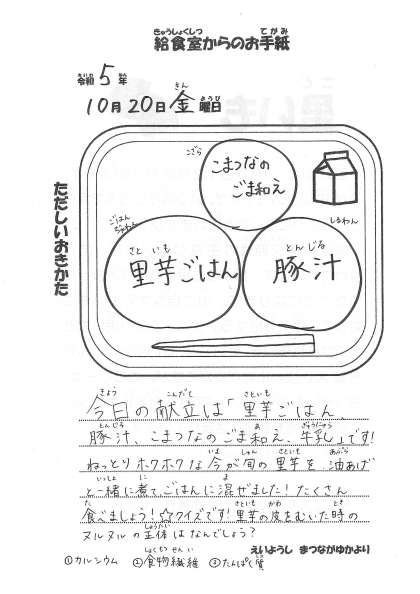 給食室からのお手紙
令和5年
10月20日金曜日
ただしいおきかた
こざら
こまつなの
ごま和え
ごはんちゃわん
里芋ごはん
しるわん
豚汁
今日の献立は「里芋ごはん、
豚汁、こまつなのごま和え、牛乳」です!
ねっとりホクホクな今が旬の里芋を油あげ
と一緒に煮て、ごはんに混ぜました!たくさん
食べましょう!☆クイズです!里芋の皮をむいた時の
ヌルヌルの正体はなんでしょう?
えいようし まつながゆかより
①カルシウム ②食物繊維 ③たんぱく質